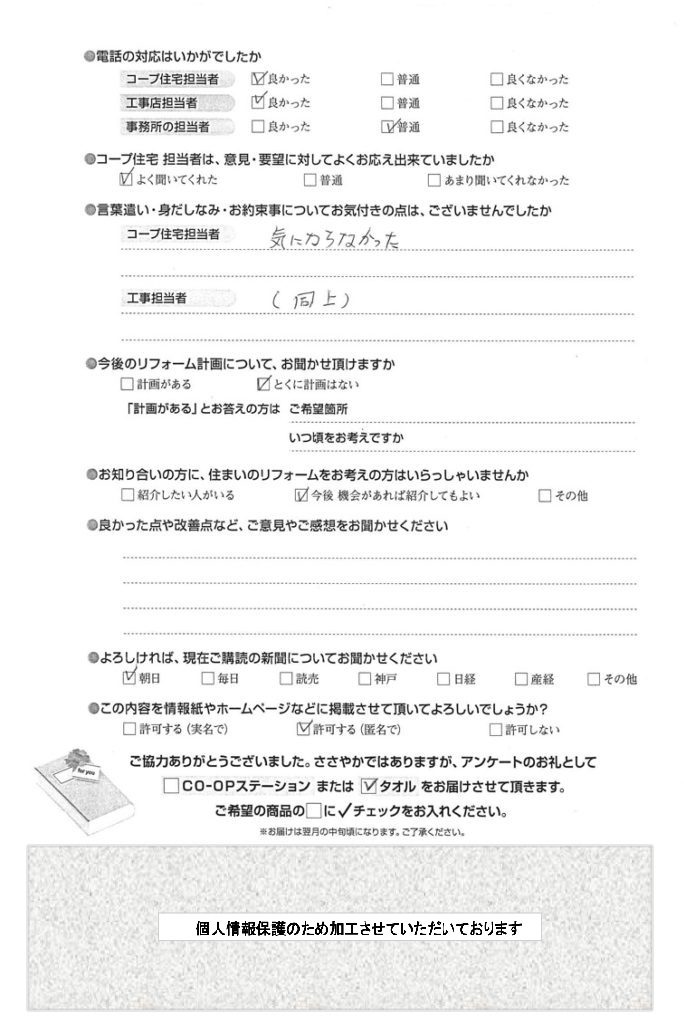 ●電話の対応はいかがでしたか
コープ住宅担当者 ☑良かった □普通 □良くなかった
工事店担当者 ☑良かった □普通 □良くなかった
事務所の担当者 □良かった ☑普通 □良くなかった
●コープ住宅 担当者は、意見・要望に対してよくお応え出来ていましたか
☑よく聞いてくれた □普通 □あまり聞いてくれなかった
●言葉遣い・身だしなみ・お約束事についてお気付きの点は、ございませんでしたか
コープ住宅担当者 気にならなかった
工事担当者 (同上)
●今後のリフォーム計画について、お聞かせ頂けますか
□計画がある ☑とくに計画はない
「計画がある」とお答えの方は ご希望箇所
いつ頃をお考えですか
●お知り合いの方に、住まいのリフォームをお考えの方はいらっしゃいませんか
□紹介したい人がいる ☑今後 機会があれば紹介してもよい □その他
●良かった点や改善点など、ご意見やご感想をお聞かせください
●よろしければ、現在ご購読の新聞についてお聞かせください
☑朝日 □毎日 □読売 □神戸 □日経 □産経 □その他
●この内容を情報紙やホームページなどに掲載させて頂いてよろしいでしょうか?
□許可する(実名で) ☑許可する(匿名で) □許可しない
for you
ご協力ありがとうございました。ささやかではありますが、アンケートのお礼として
□CO-OPステーション または ☑タオル をお届けさせて頂きます。
ご希望の商品の□に✓チェックをお入れください。
※お届けは翌月の中旬頃になります。ご了承ください。
個人情報保護のため加工させていただいております